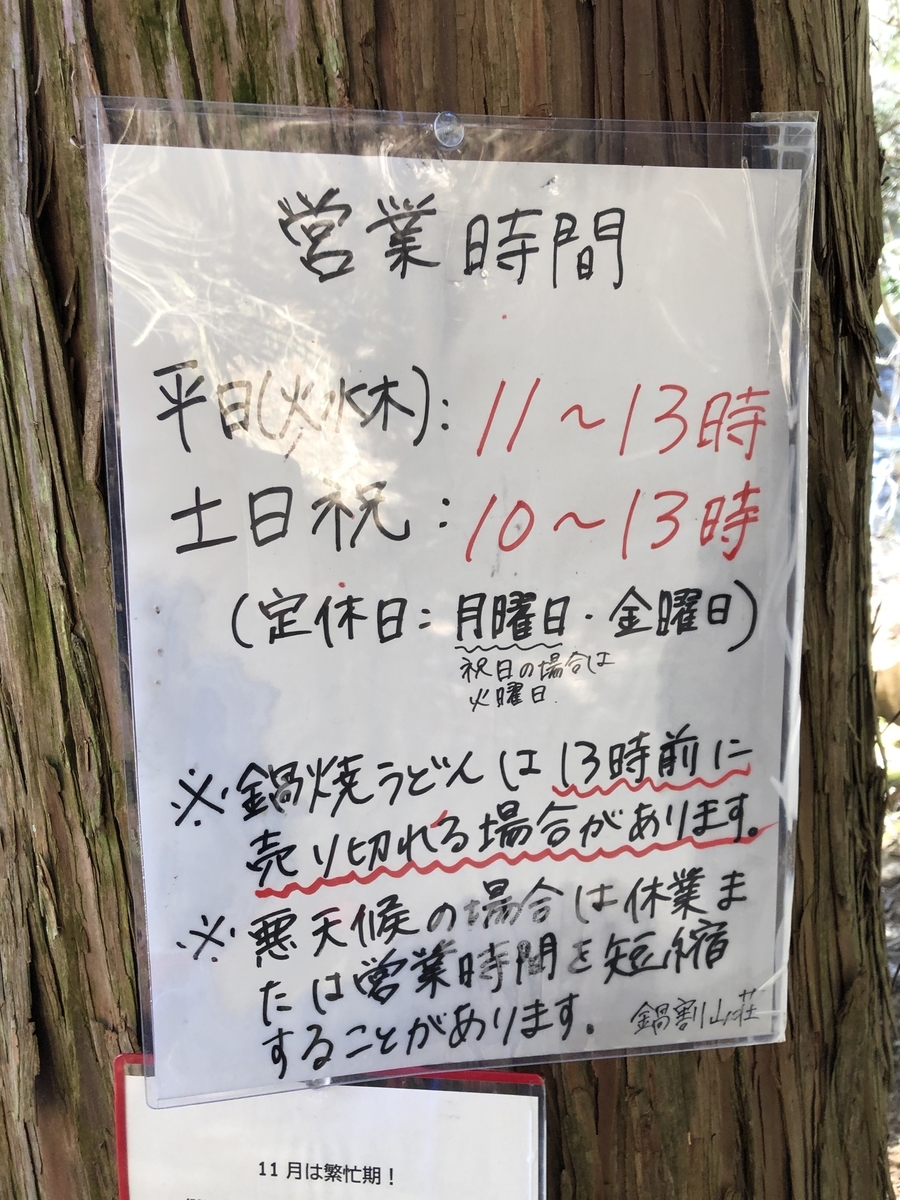 営業時間
平日(火水木): 11～13時
土日祝: 10～13時
(定休日: 月曜日・金曜日)
祝日の場合は
火曜日.
※鍋焼うどんは13時前に
売り切れる場合があります。
※悪天候の場合は休業ま
たは営業時間を短縮
することがあります。
鍋割山荘
11月は繁忙期！